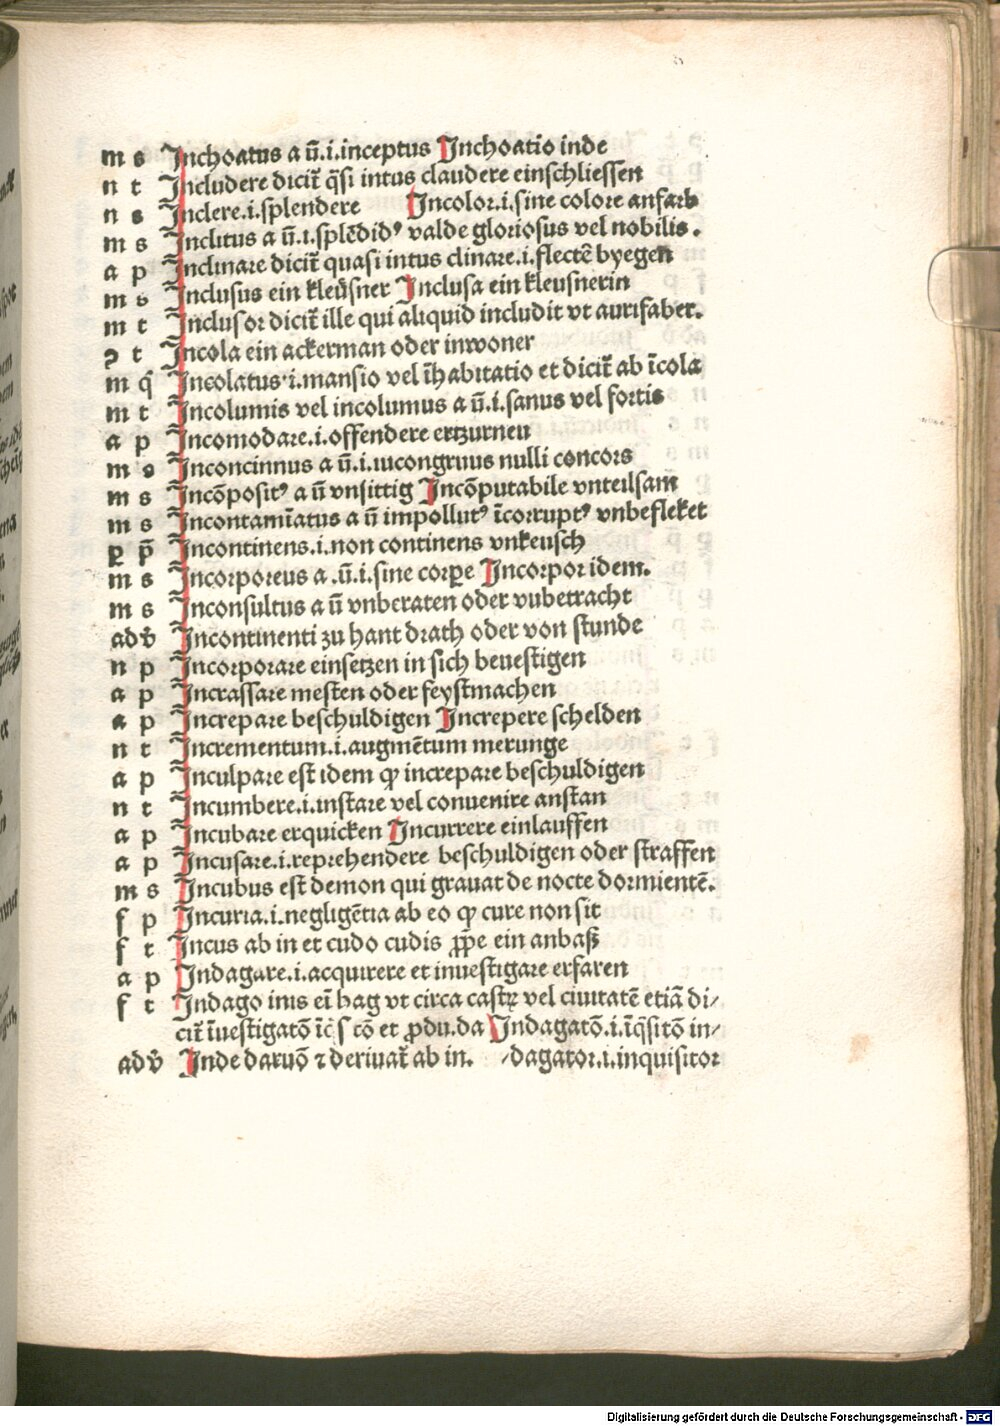 m s Inchoatus a ū.i.inceptus Inchoatio inde
n t Includere dicit̄ q̄si intus claudere einschliessen
n s Inclere.i.splendere Incolor.i.sine colore anfarb
m s Inclitus a ū.i.splēdidꝰ valde gloriosus vel nobilis.
a p Inclinare dicit̄ quasi intus clinare.i.flectē byegen
m s Inclusus ein kleüsner Inclusa ein kleusnerin
m t Inclusor dicit̄ ille qui aliquid includit vt aurifaber.
ꝯ t Incola ein ackerman oder inwoner
m q̄ Incolatus.i.mansio vel īhabitatio et dicit̄ ab īcola
m t Incolumis vel incolumus a ū.i.sanus vel fortis
a p Incomodare.i.offendere ertzurnen
m s Inconcinnus a ū.i.incongruus nulli concors
m s Incōpositꝰ a ū vnsittig Incōputabile vnteilsam
m s Incontamīatus a ū impollutꝰ īcorruptꝰ vnbefleket
ꝑ p̄ Incontinens.i.non continens vnkeusch
m s Incorporeus a .ū.i.sine corꝑe Incorpor idem.
m s Inconsultus a ū vnberaten oder vnbetracht
adv̄ Incontinenti zu hant drath oder von stunde
n p Incorporare einsetzen in sich beuestigen
a p Incrassare mesten oder feystmachen
a p Increpare beschuldigen Increpere schelden
n t Incrementum.i.augmētum merunge
a p Inculpare est idem qꝫ increpare beschuldigen
n t Incumbere.i.instare vel conuenire anstan
a p Incubare erquicken Incurrere einlauffen
a p Incusare.i.reprehendere beschuldigen oder straffen
m s Incubus est demon qui grauat de nocte dormientē.
f p Incuria.i.negligētia ab eo qꝫ cure non sit
f t Incus ab in et cudo cudis ꝓp̄e ein anbaß
a p Indagare.i.acquirere et inuestigare erfaren
f t Indago inis eī hag vt circa castꝝ vel ciuitatē etiā di/
cit̄ īuestigatō īc̄ s cō et ꝓdu.da Indagatō.i.īq̄sitō in/
adv̄ Inde daruō ⁊ deriuat̄ ab in. /dagator.i.inquisitor
Digitalisierung gefördert durch die Deutsche Forschungsgemeinschaft - DFG